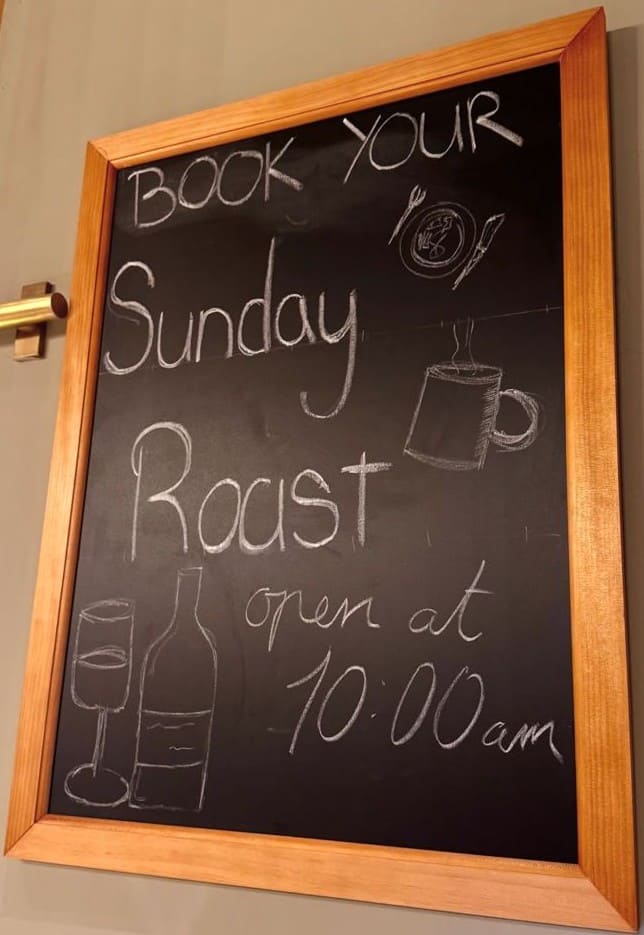 BOOK YOUR
Sunday
Roast
open at
10:00am